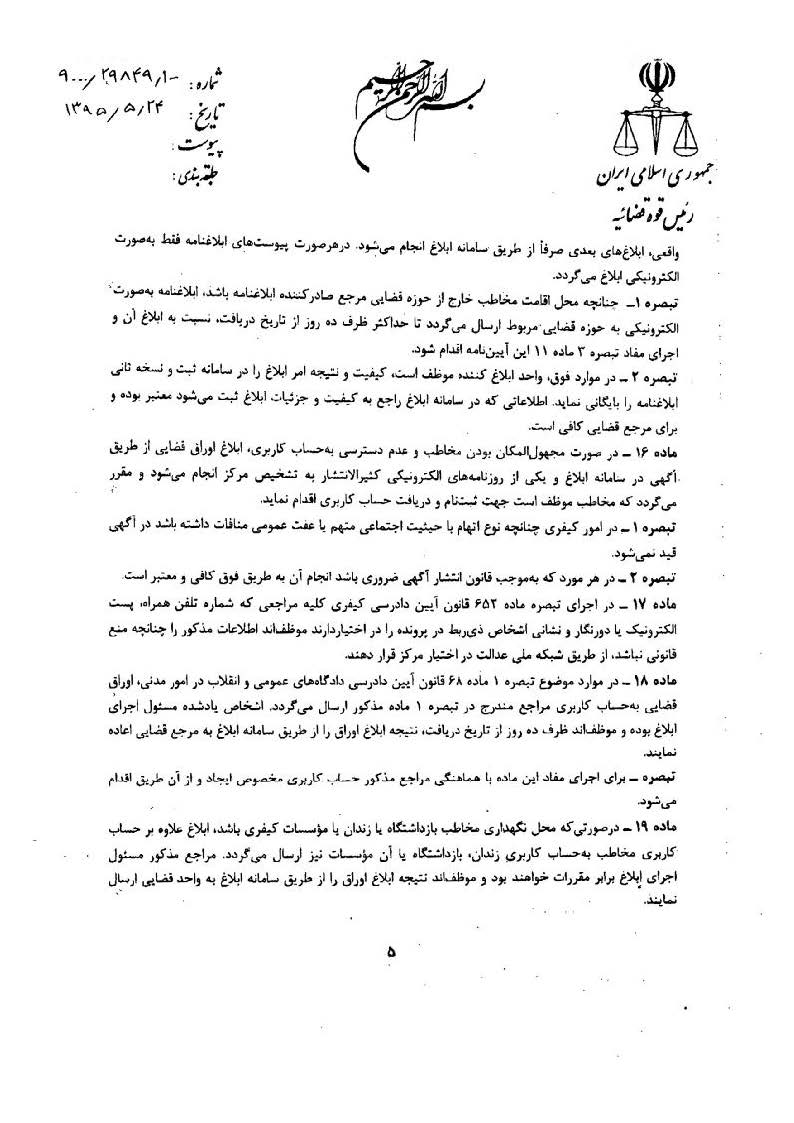 بسم الله الرحمن الرحیم
جمهوری اسلامی ایران
رئیس قوه قضائیه
شماره: ۹۰۰۰/۲۹۸۴۹/۱۰۰
تاریخ: ۱۳۹۵/۵/۲۴
پیوست:
طبقه‌بندی:
واقعی، ابلاغ‌های بعدی صرفاً از طریق سامانه ابلاغ انجام می‌شود. درهرصورت پیوست‌های ابلاغنامه فقط به‌صورت
الکترونیکی ابلاغ می‌گردد.
تبصره ۱ـ چنانچه محل اقامت مخاطب خارج از حوزه قضایی مرجع صادرکننده ابلاغنامه باشد، ابلاغنامه به‌صورت
الکترونیکی به حوزه قضایی مربوط ارسال می‌گردد تا حداکثر ظرف ده روز از تاریخ دریافت، نسبت به ابلاغ آن و
اجرای مفاد تبصره ۳ ماده ۱۱ این آیین‌نامه اقدام شود.
تبصره ۲ ـ در موارد فوق، واحد ابلاغ کننده موظف است، کیفیت و نتیجه امر ابلاغ را در سامانه ثبت و نسخه ثانی
ابلاغنامه را بایگانی نماید. اطلاعاتی که در سامانه ابلاغ راجع به کیفیت و جزئیات ابلاغ ثبت می‌شود معتبر بوده و
برای مرجع قضایی کافی است.
ماده ۱۶ ـ در صورت مجهول‌المکان بودن مخاطب و عدم دسترسی به‌حساب کاربری، ابلاغ اوراق قضایی از طریق
آگهی در سامانه ابلاغ و یکی از روزنامه‌های الکترونیکی کثیرالانتشار به تشخیص مرکز انجام می‌شود و مقرر
می‌گردد که مخاطب موظف است جهت ثبت‌نام و دریافت حساب کاربری اقدام نماید.
تبصره ۱ ـ در امور کیفری چنانچه نوع اتهام با حیثیت اجتماعی متهم یا عفت عمومی منافات داشته باشد در آگهی
قید نمی‌شود.
تبصره ۲ ـ در هر مورد که به‌موجب قانون انتشار آگهی ضروری باشد انجام آن به طریق فوق کافی و معتبر است.
ماده ۱۷ ـ در اجرای تبصره ماده ۶۵۲ قانون آیین دادرسی کیفری کلیه مراجعی که شماره تلفن همراه، پست
الکترونیک یا دورنگار و نشانی اشخاص ذی‌ربط در پرونده را در اختیاردارند موظف‌اند اطلاعات مذکور را چنانچه منع
قانونی نباشد، از طریق شبکه ملی عدالت در اختیار مرکز قرار دهند.
ماده ۱۸ ـ در موارد موضوع تبصره ۱ ماده ۶۸ قانون آیین دادرسی دادگاه‌های عمومی و انقلاب در امور مدنی، اوراق
قضایی به‌حساب کاربری مراجع مندرج در تبصره ۱ ماده مذکور ارسال می‌گردد. اشخاص یادشده مسئول اجرای
ابلاغ بوده و موظف‌اند ظرف ده روز از تاریخ دریافت، نتیجه ابلاغ اوراق را از طریق سامانه ابلاغ به مرجع قضایی اعاده
نمایند.
تبصره ـ برای اجرای مفاد این ماده با هماهنگی مراجع مذکور حساب کاربری مخصوص ایجاد و از آن طریق اقدام
می‌شود.
ماده ۱۹ ـ درصورتی‌که محل نگهداری مخاطب بازداشتگاه یا زندان یا مؤسسات کیفری باشد، ابلاغ علاوه بر حساب
کاربری مخاطب به‌حساب کاربری زندان، بازداشتگاه یا آن مؤسسات نیز ارسال می‌گردد. مراجع مذکور مسئول
اجرای ابلاغ برابر مقررات خواهند بود و موظف‌اند نتیجه ابلاغ اوراق را از طریق سامانه ابلاغ به واحد قضایی ارسال
نمایند.
۵